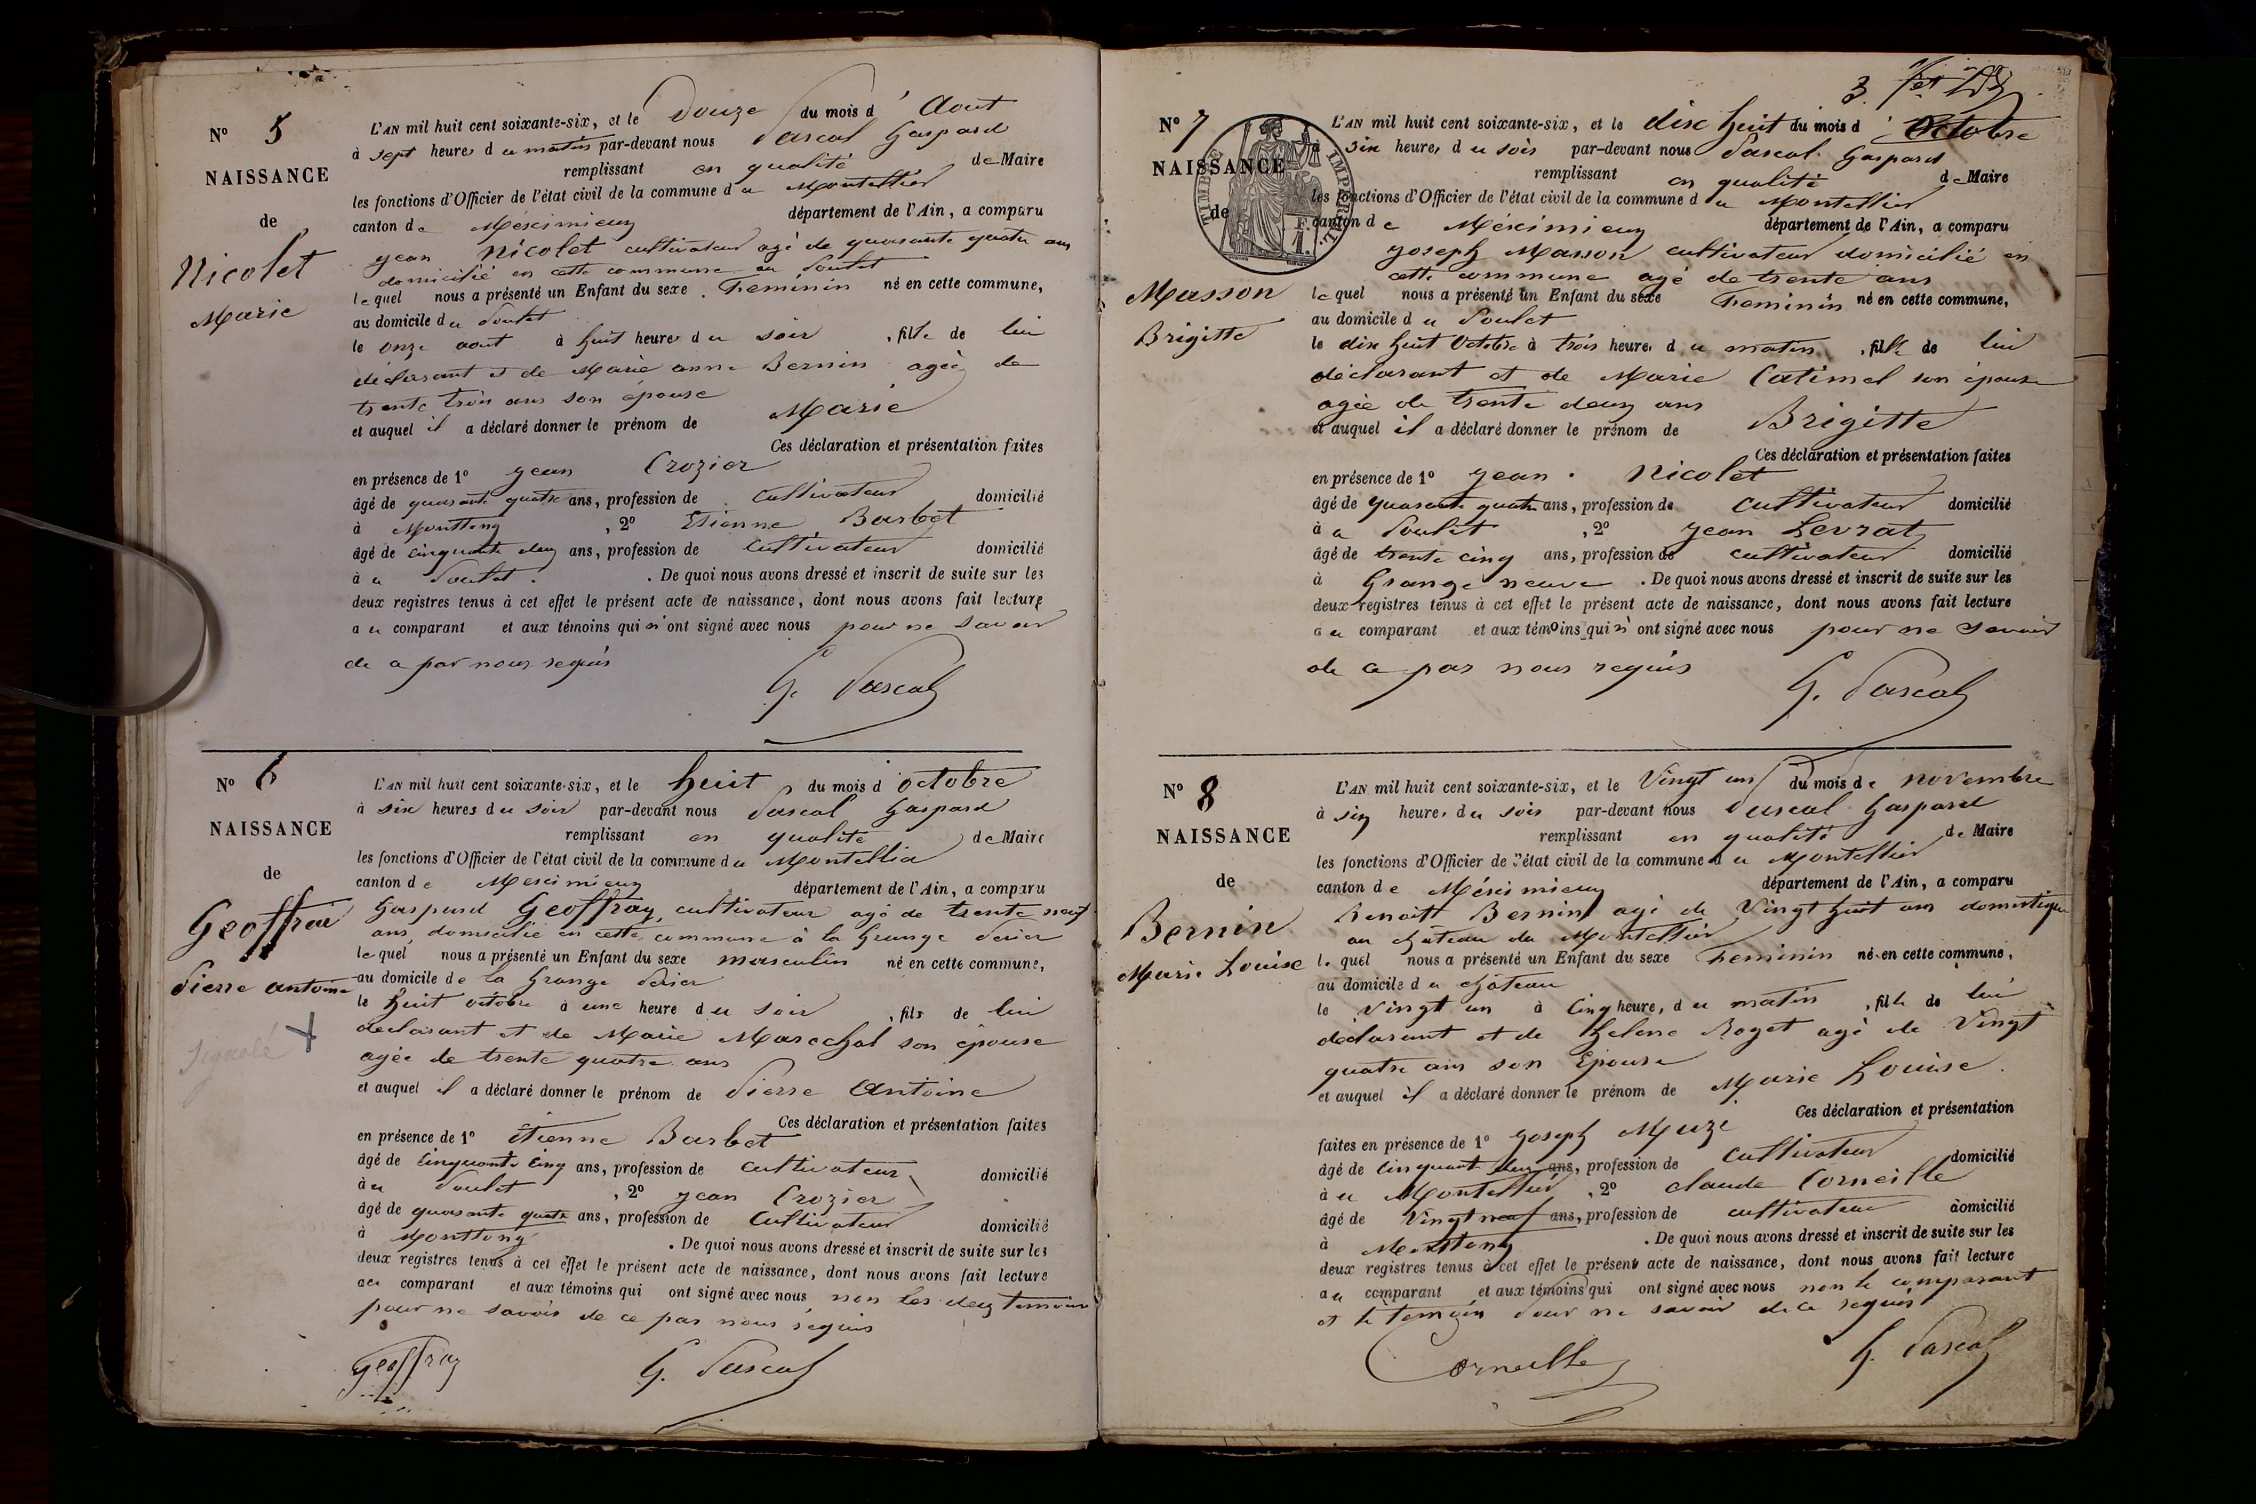 N° 5
NAISSANCE
de
Nicolet
Marie
L'AN mil huit cent soixante-six, et le Douze du mois d' Aout
à sept heures du matin par-devant nous Pascal Gaspard
remplissant en qualité de Maire
les fonctions d'Officier de l'état civil de la commune du Montellier
canton de Méximieux département de l'Ain, a comparu
jean Nicolet cultivateur agé de quarante quatre ans
domicilié en cette commune au Poulet
lequel nous a présenté un Enfant du sexe Feminin né en cette commune,
au domicile du Poulet
le onze aout à huit heures du soir, fille de lui
déclarant et de Marie anne Bernin agée de
trente trois ans son épouse
et auquel il a déclaré donner le prénom de Marie
Ces déclaration et présentation faites
en présence de 1° jean Crozier
âgé de quarante quatre ans, profession de cultivateur domicilié
à Montteng, 2° Etienne Barbet
âgé de cinquante deux ans, profession de cultivateur domicilié
à u Poulet. De quoi nous avons dressé et inscrit de suite sur les
deux registres tenus à cet effet le présent acte de naissance, dont nous avons fait lecture
au comparant et aux témoins qui n'ont signé avec nous pour ne savoir
de ce par nous requis
G. Pascal
N° 6
NAISSANCE
de
Geoffrai
Pierre antoine
Signalé
L'AN mil huit cent soixante-six, et le huit du mois d'octobre
à six heures du soir par-devant nous Pascal Gaspard
remplissant en qualité de Maire
les fonctions d'Officier de l'état civil de la commune du Montellier
canton de Meximieux département de l'Ain, a comparu
Gaspard Geoffray cultivateur agé de trente neuf
ans domicilié en cette commune à la Grange
lequel nous a présenté un Enfant du sexe masculin né en cette commune,
au domicile de la Grange
le huit octobre à une heure du soir, fils de lui
declarant et de Marie Marechal son épouse
agée de trente quatre ans
et auquel il a déclaré donner le prénom de Pierre Antoine
Ces déclaration et présentation faites
en présence de 1° étienne Barbet
âgé de Cinquante Cinq ans, profession de cultivateur domicilié
à u Poulet, 2° jean Crozier
âgé de quarante quatre ans, profession de Cultivateur domicilié
à Montteng. De quoi nous avons dressé et inscrit de suite sur les
deux registres tenus à cet effet le présent acte de naissance, dont nous avons fait lecture
au comparant et aux témoins qui ont signé avec nous non les deux temoins
pour ne savoir de ce par nous requis
geoffray G. Pascal
3
N° 7
NAISSANCE
de
TIMBRE IMPERIAL
F. 1
Masson
Brigitte
L'AN mil huit cent soixante-six, et le dix huit du mois d' Octobre
à six heures du soir par-devant nous Pascal Gaspard
remplissant en qualité de Maire
les fonctions d'Officier de l'état civil de la commune du Montellier
canton de Méximieux département de l'Ain, a comparu
joseph Masson cultivateur domicilié en
cette commune agé de trente ans
lequel nous a présenté un Enfant du sexe Feminin né en cette commune,
au domicile du Poulet
le dix huit Octobre à trois heures du matin, fille de lui
déclarant et de Marie Catimel son épouse
agée de trente deux ans
et auquel il a déclaré donner le prénom de Brigitte
Ces déclaration et présentation faites
en présence de 1° jean Nicolet
âgé de quarante quatre ans, profession de cultivateur domicilié
à u Poulet, 2° jean Levrat
âgé de trente cinq ans, profession de cultivateur domicilié
à Grange neuve. De quoi nous avons dressé et inscrit de suite sur les
deux registres tenus à cet effet le présent acte de naissance, dont nous avons fait lecture
au comparant et aux témoins qui n'ont signé avec nous pour ne savoir
de ce par nous requis
G. Pascal
N° 8
NAISSANCE
de
Bernin
Marie Louise
L'AN mil huit cent soixante-six, et le Vingt un du mois de novembre
à six heures du soir par-devant nous Pascal Gaspard
remplissant en qualité de Maire
les fonctions d'Officier de l'état civil de la commune du Montellier
canton de Méximieux département de l'Ain, a comparu
Benoitt Bernin agé de Vingt huit ans domestique
au château du Montellier
lequel nous a présenté un Enfant du sexe Feminin né en cette commune,
au domicile du château
le Vingt un à Cinq heures du matin, fille de lui
déclarant et de helene Roget agé de Vingt
quatre ans son Epouse
et auquel il a déclaré donner le prénom de Marie Louise
Ces déclaration et présentation
faites en présence de 1° joseph Muzi
âgé de Cinquante deux ans, profession de cultivateur domicilié
à u Montellier, 2° claude Corneille
âgé de Vingt neuf ans, profession de cultivateur domicilié
à Montteng. De quoi nous avons dressé et inscrit de suite sur les
deux registres tenus à cet effet le présent acte de naissance, dont nous avons fait lecture
au comparant et aux témoins qui ont signé avec nous non le comparant
et le temoin Pour ne savoir de ce requis
Corneille G. Pascal